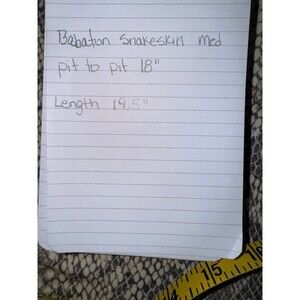 Babaton Snakeskin Med
pit to pit 18"
Length 19.5"
15